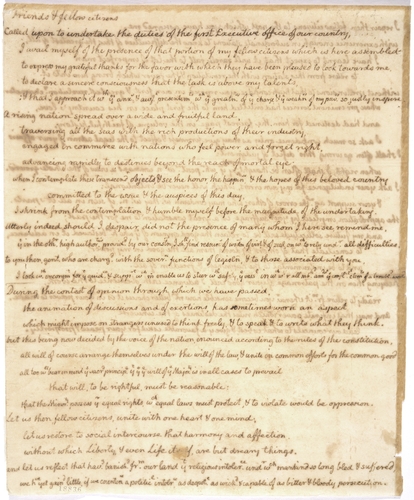 Friends & fellow citizens
Called upon to undertake the duties of the first Executive office of our country,
I avail myself of the presence of that portion of my fellow citizens which is here assembled
to express my grateful thanks for the favor with which they have been pleased to look towards me,
to declare a sincere consciousness that the task is above my talents,
& that I approach it wth
A rising nation spread over a wide and fruitful land.
traversing all the seas with the rich productions of their industry,
engaged in commerce with nations who feel power and forget right,
advancing rapidly to destinies beyond the reach of mortal eye
when I contemplate these transcendt objects & see the honor, the happin & the hopes of this beloved country
committed to the issue & the auspices of this day,
I shrink from the contemplation & humble myself before the magnitude of the undertaking
utterly indeed should I despair, did not the presence of many whom I here see remind me,
yt in the othr high authors provid by our constn I shl find all difficulties.
to you then gent. who are charg with the sovern functions of legisln & to those associated with you
I look
During the contest of opinion through which we have passed,
the animation of discussions and of exertions has sometimes worn an aspect
which might impose on strangers unused to think freely, & to speak & to write what they think.
but this being now decided by the voice of the nation enounced according to the rules of the constitution,
all will of course arrange themselves under the will of the law & unite in common efforts for the common good
all too will bear in mind in all cases to prevail
that will, to be rightful, must be reasonable:
that the minor possess yr equal rights wh equal laws must protect, & to violate would be oppression.
Let us then fellow citizens, unite with one heart & one mind,
let us restore to social intercourse that harmony and affection
without which Liberty, & even Life itself, are but dreary things,
and let us reflect that havg banishd frm our land yt religious intolce undr wch mankind so long bled & suffered
we hve yet gaind little if we countence a politicl intolce as despotic as wickd & capable of as bitter & bloody persecution.